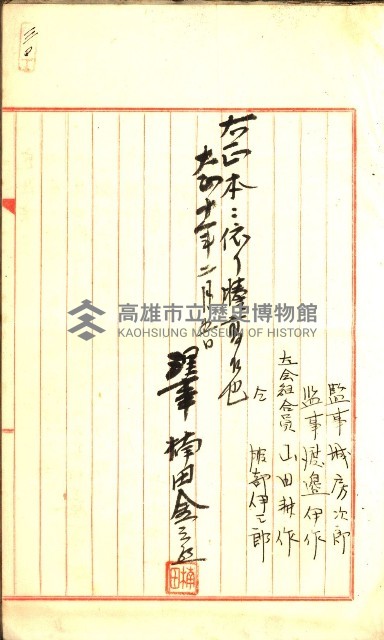 監事 城房次郎
監事 渡邉伊作
立会組合員 山田耕作
仝 服部伊三郎
右正本ニ依リ謄寫候也
大正十一年二月 日
理事 楠田金之丞
楠田
高雄市立歷史博物館
KAOHSIUNG MUSEUM OF HISTORY